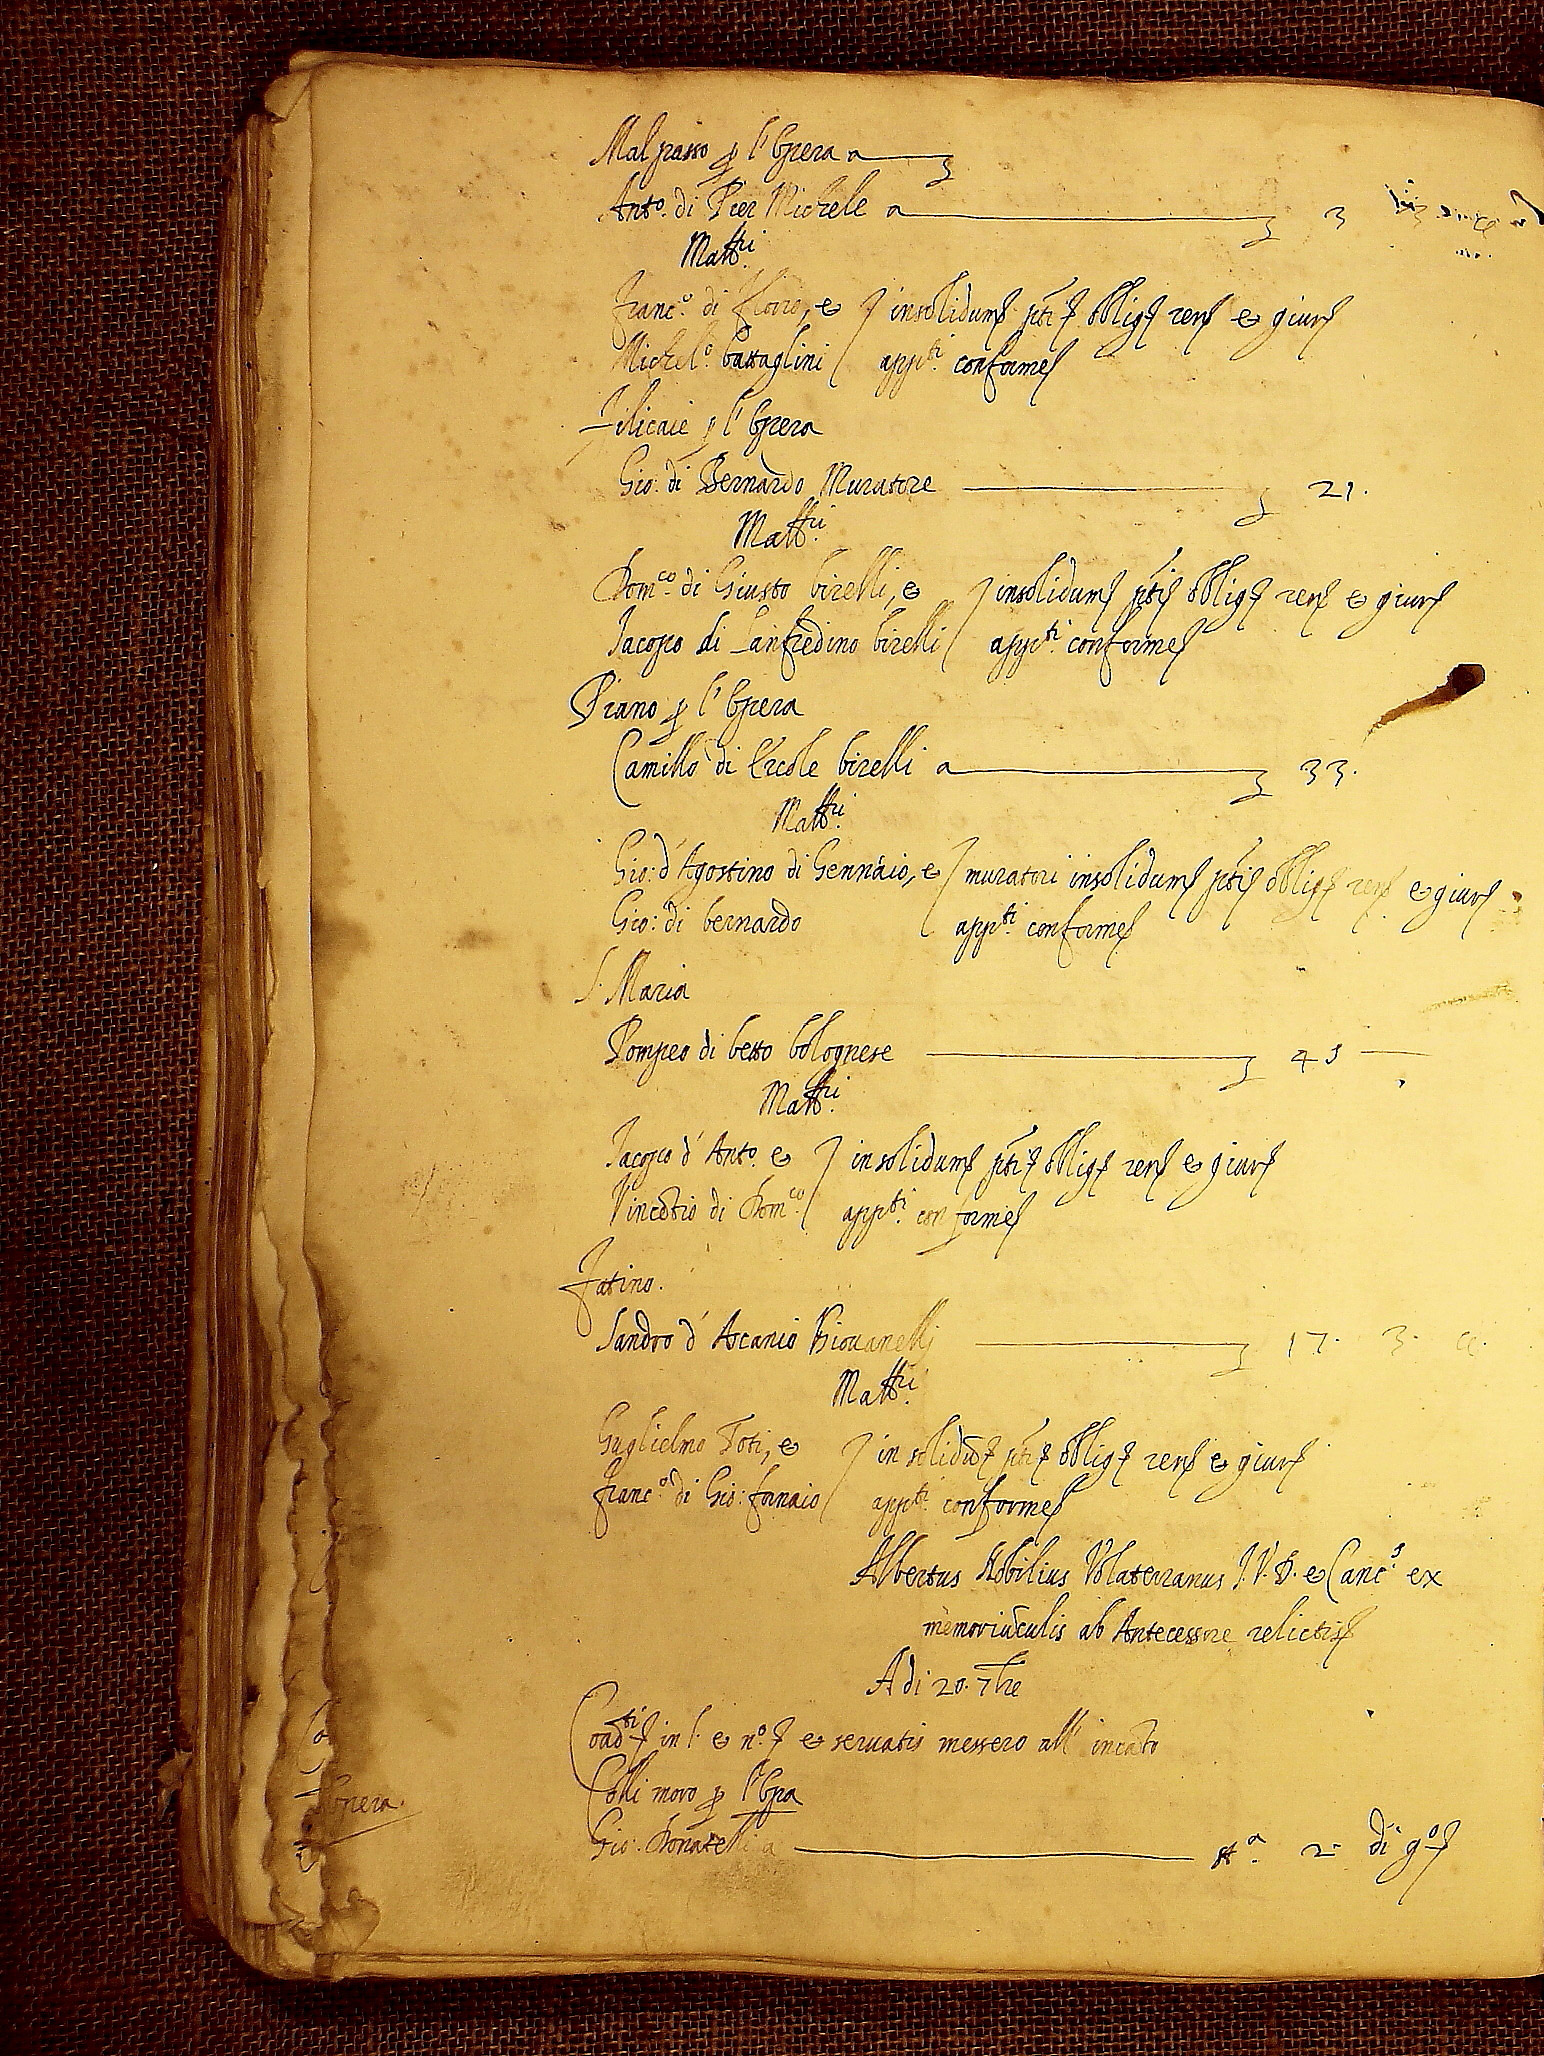 Malpasso p l'Opera a
Anto. di Pier Michele a 3
Mall.ri
Franc.o di Florio, e insolidum obligh renh e giurh
Michel.o battaglini app.ti conformeh
Filicaie p l'Opera
Gio: di Bernardo Muratore 21.
Mall.ri
Dom.co di Giusto birelli, e insolidum obligh renh e giurh
Jacopo di Lanfredino birelli app.ti conformeh
Piano p l'Opera
Camillo di Ercole birelli a 33.
Mall.ri
Gio: d'Agostino di Gennaio, e muratori insolidum obligh renh e giurh
Gio: di bernardo app.ti conformeh
S. Maria
Pompeo di betto bolognese
Mall.ri
Jacopo d'Anto. e insolidum obligh renh e giurh
Vincētio di Dom.co app.ti conformeh
Fatino.
Sandro d'Ascanio 17. 3.
Mall.ri
Guglielmo Toti, e in solidū obligh renh e giurh
Franc.o di Gio: fornaio app.ti conformeh
Albertus Nobilius Volaterranus J.V.D. e Canc.s ex
memoriūculis ab Antecessore relictis
A di 20. 7bre
in e n.o e seruatis messero all' incāto
Colli moro p l'Opa
Opera.
Gio: Donatelli a st.a 2 di g.o